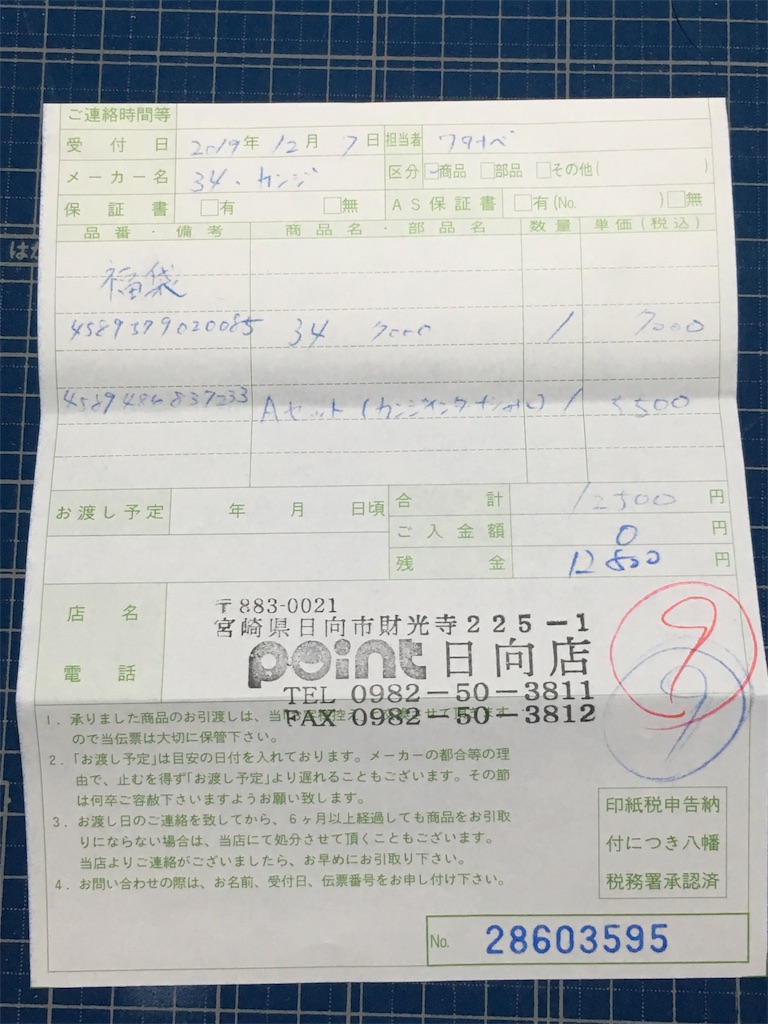 ご連絡時間等
受付日 2019年 12月 7日 担当者 ワタナベ
メーカー名 34・カンジ 区分 ☑商品 □部品 □その他( )
保証書 □有 □無 AS保証書 □有(No. ) □無
品番・備考 商品名・部品名 数量 単価(税込)
福袋
4589379020085 34 7000 1 7000
Aセット(カンジインターナショナル) 1 5500
お渡し予定 年 月 日頃 合計 12500円
ご入金額 0円
残金 12500円
店名
電話
〒883-0021
宮崎県日向市財光寺225-1
point日向店
TEL 0982-50-3811
FAX 0982-50-3812
9
9
1. 承りました商品のお引渡しは、
ので当伝票は大切に保管下さい。
2.「お渡し予定」は目安の日付を入れております。メーカーの都合等の理
由で、止むを得ず「お渡し予定」より遅れることもございます。その節
は何卒ご容赦下さいますようお願い致します。
3. お渡し日のご連絡を致してから、6ヶ月以上経過しても商品をお引取
りにならない場合は、当店にて処分させて頂くこともございます。
当店よりご連絡がございましたら、お早めにお引取り下さい。
4. お問い合わせの際は、お名前、受付日、伝票番号をお申し付け下さい。
印紙税申告納
付につき八幡
税務署承認済
No. 28603595